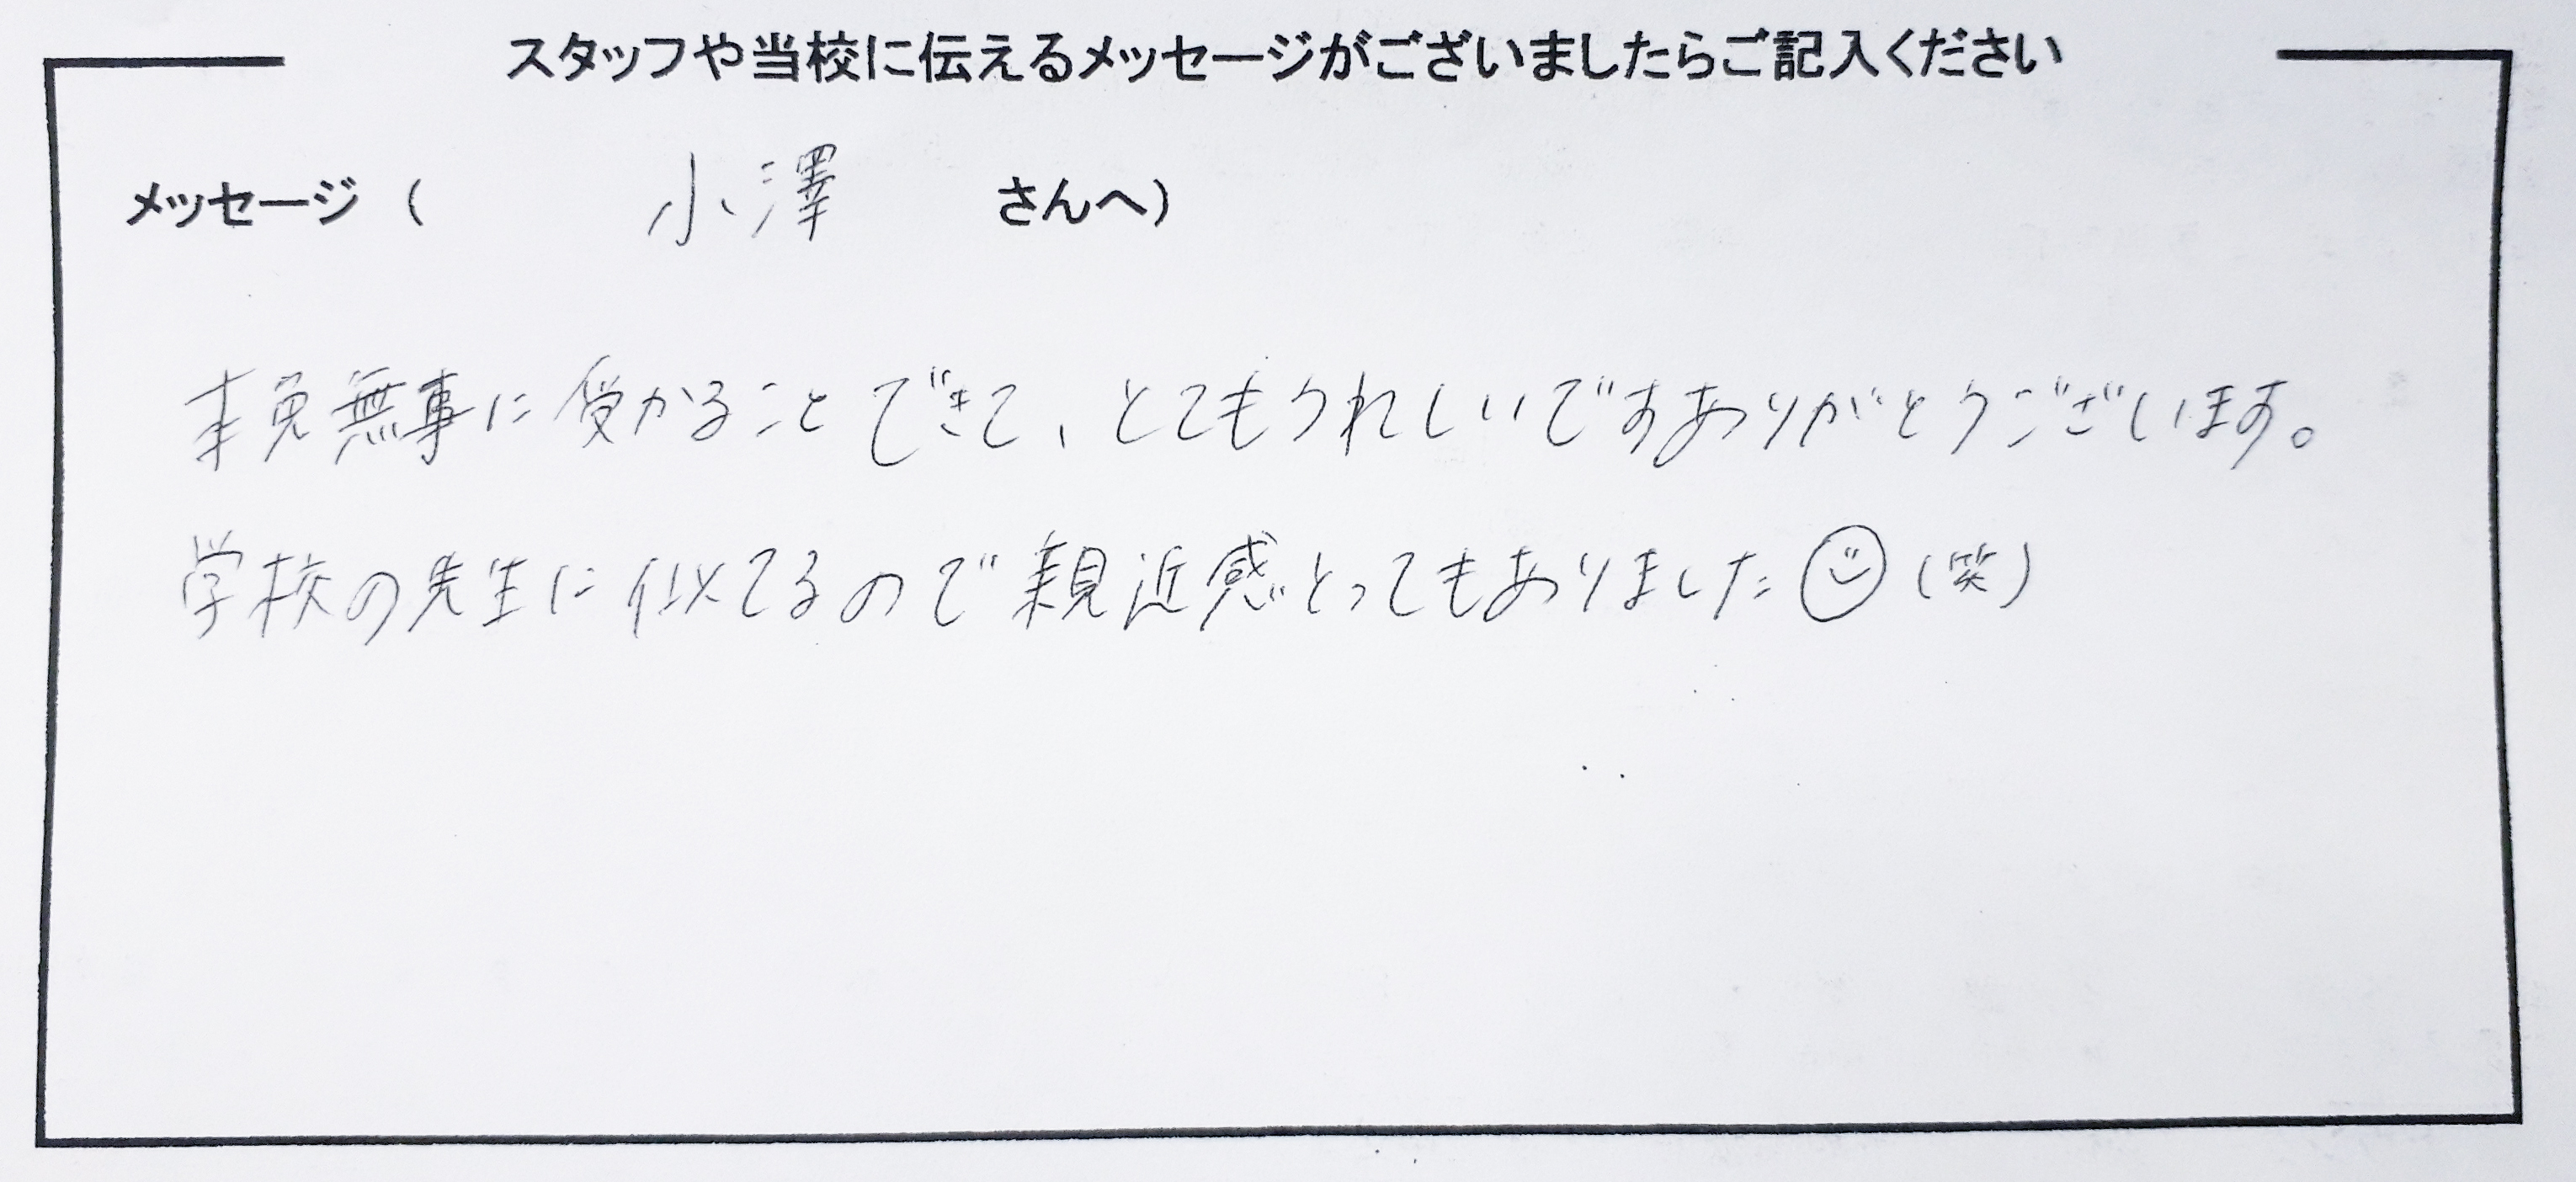 スタッフや当校に伝えるメッセージがございましたらご記入ください
メッセージ ( 小澤 さんへ)
本免無事に受かることできて、とてもうれしいですありがとうございます。
学校の先生に似てるので親近感とってもありました☺(笑)